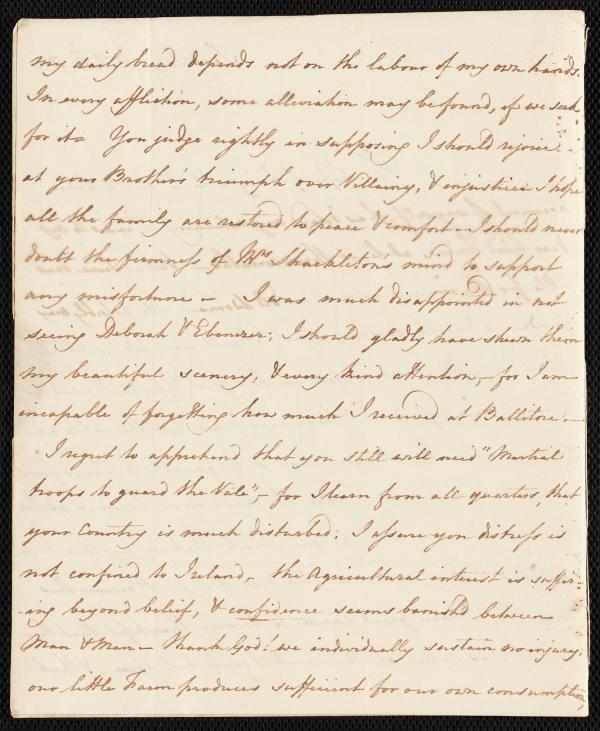 my daily bread depends not on the labour of my own hands.
In every affliction, some alleviation may be found, if we seek
for it – You judge rightly in supposing I should rejoice
at your Brother's triumph over Villainy, & injustice I hope
all the family are restored to peace & comfort – I should never
doubt the firmness of Mrs Shackleton's mind to support
any misfortune – I was much disappointed in not
seeing Deborah & Ebenezer; I should gladly have shewn them
my beautiful scenery, & every kind attention, – for I am
incapable of forgetting how much I received at Ballitore. –
I regret to apprehend that you still will need "Martial
troops to guard the Vale", – for I learn from all quarters, that
your Country is much disturbed; I assure you distress is
not confined to Ireland, – the Agricultural interest is suffer-
ing beyond belief, & confidence seems banish'd between
Man & Man – thank God! we individually sustain no injury:
our little Farm produces sufficient for our own consumption,